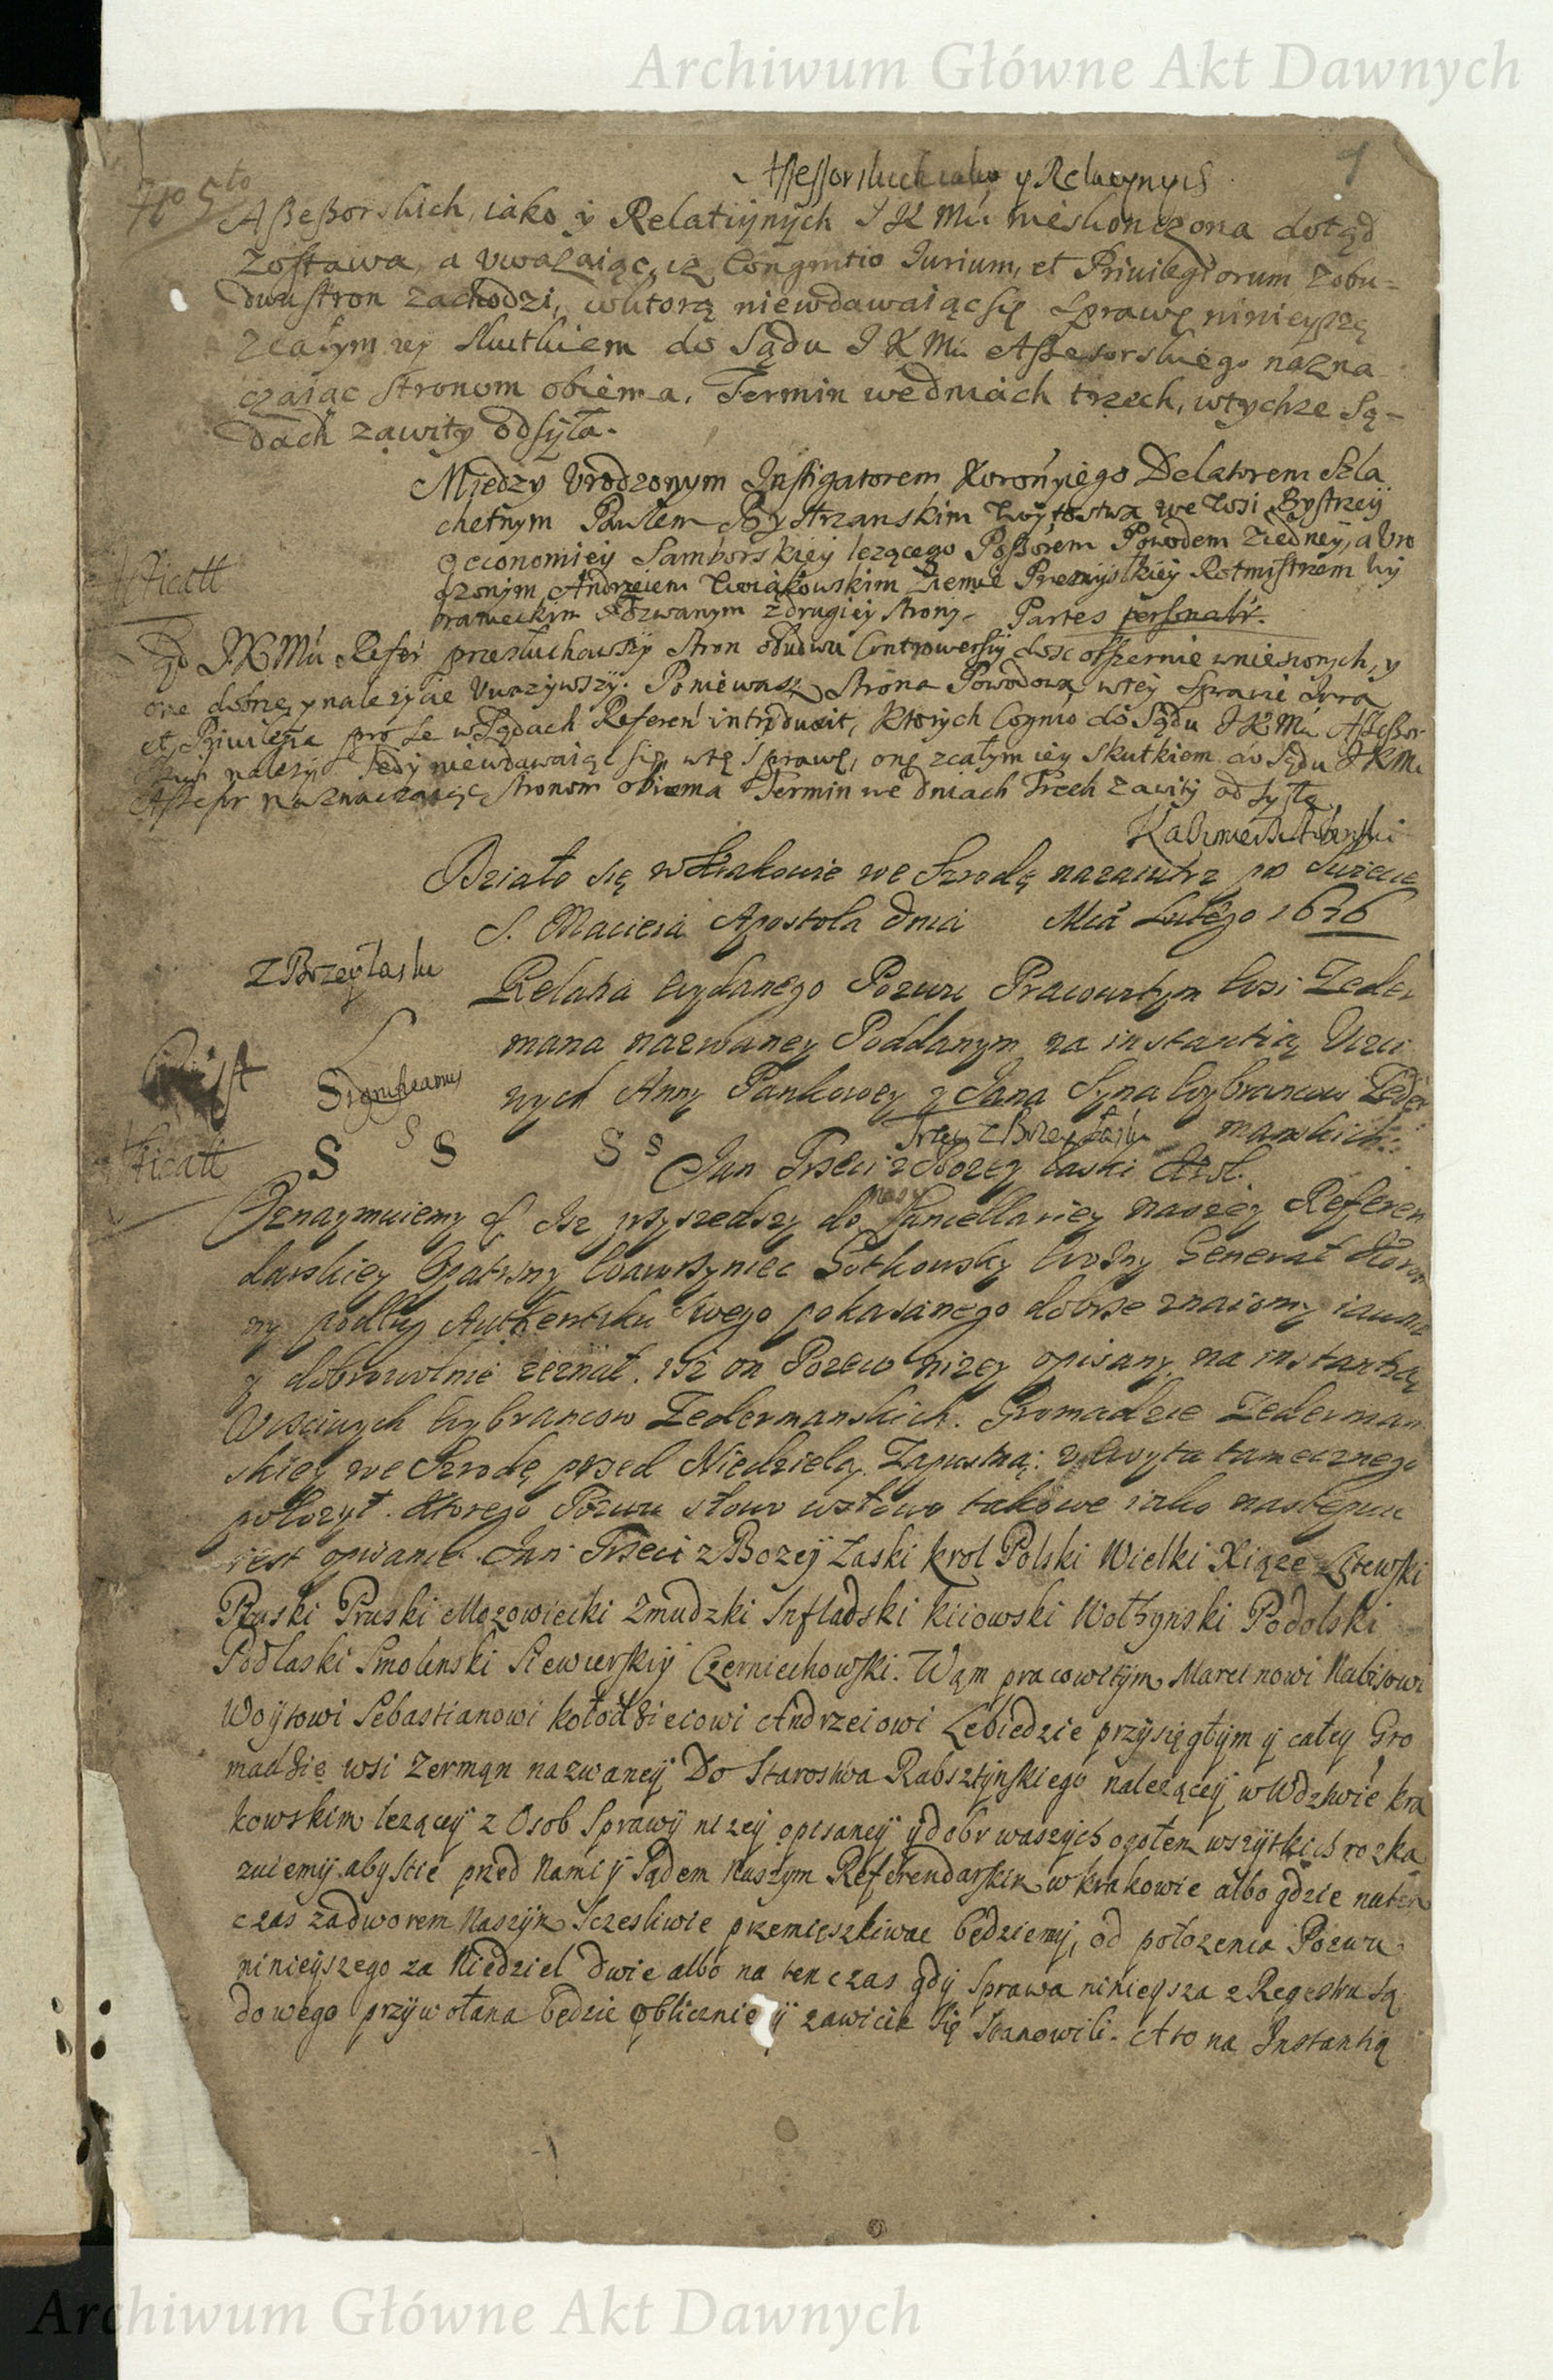 Archiwum Główne Akt Dawnych
y Relacynych
Aßeßorskich, iako y Relatijnych J K Mci nieskonczona dotąd
zostawa, a vwazaiąc, iz Congnitio Iurium, et Priuilegiorum zobu=
dwu stron zachodzi, wktorą niewdawaiąc się Sprawę ninieyszą
zcałym iey skutkiem do Sądu J K Mci Aßesorskiego nazna
czaiąc stronom obiema, Termin wedniach trzech, wtychze Są-
dach zawity odsyła.
Między Vrodzonym Instigatorem Koronnego Delatorem Szla
chetnym Pawłem Bystrzanskim Woytostwa we Wsi Bystrzey
Oeconomiey Samborskiey lezącego Poßorem Powodem ziedney, a Vro
dzonym Andrzeiem Ziemie Przemyskiey Rotmistrzem Wy
branieckim Pozwanym zdrugiey strony. Partes personalr.
ąd J K Mci Refer przesłuchawszy stron obudwu Controwersiy dosc obszernie wniesionych, y
one dobrze y nalezycie Vwazywszy. Poniewasz Strona Powodowa wtey Sprawie Iura
et Priuilegia pro se w Sądach Referen introduxit, ktorych Cognio do Sądu J K Mci Aßeßor
nalezy Tedy niewdawaiąc się wtę sprawę, onę zcałym iey skutkiem do Sądu J K M
Aßeßor naznaczaiąc stronom obiema Termin we dniach Trzech zawity odsyła.
Działo się w Krakowie we Szrodę nazaiutrz po Swięcie
S. Macieia Apostola dnia Mca Lutego 1676
Z Bozey łaski
Relatia wydanego Pozwu Pracowitym Wsi Zeder
mana nazwaney Poddanym na instantią Vczci
wych Anny Pankowey y Jana Syna Wybrancow Zeder
Trzeci z Bozey Łaski manskich.
Significamus
S S S S S
Jan Trzeci z Bozey łaski Krol.
Oznaymuiemy Isz przyszedszy do Kancellariey naszey Referen
darskiey Opatrzny Wawrzyniec Gotkowsky Wozny Generał Koron
ny podług Authentiku swego pokazanego dobrze znaiomy iawnie
y dobrowolnie zeznał. Isz on Pozew nizey opisany na instantią
Vczciwych Wybrancow Zedermanskich. Gromadzie Zederman
skiey we Szrodę przed Niedzielą Zapustną: v Woyta tamecznego
połozył. Ktorego Pozwu słowo wsłowo takowe iako nastempuie
iest opisanie. Jan Trzeci z Bozey Łaski krol Polski Wielki Xiąze Litewski
Ruski Pruski Mazowiecki Zmudzki Inflādski kiiowski Wołhynski Podolski
Podlaski Smolenski Siewierskiy Czerniechowski. Wąm pracowitym Marcinowi Kabisowi
Woytowi Sebastianowi kołodzieiowi Andrzeiowi Lebiedzie przysięgłym y całey Gro
madzie wsi Zermąn nazwaney Do Starostwa Rabsztynskiego nalezącey w Wdztwie kra
kowskim lezącey z Osob Sprawy nizey opisaney y dobr waszych ogołem wszytkich rozka
zuiemy abyście przed Nami y Sądem Naszym Referendarskim w krakowie albo gdzie naten
czas zadworem Naszym Sczesliwie przemieszkiwac będziemy, od połozenia Pozwu
ninieyszego za Niedziel dwie albo na ten czas gdy Sprawa ninieysza z Regestru są
dowego przywołana będzie oblicznie y zawicie się stanowili. A to na Instantią
Archiwum Główne Akt Dawnych